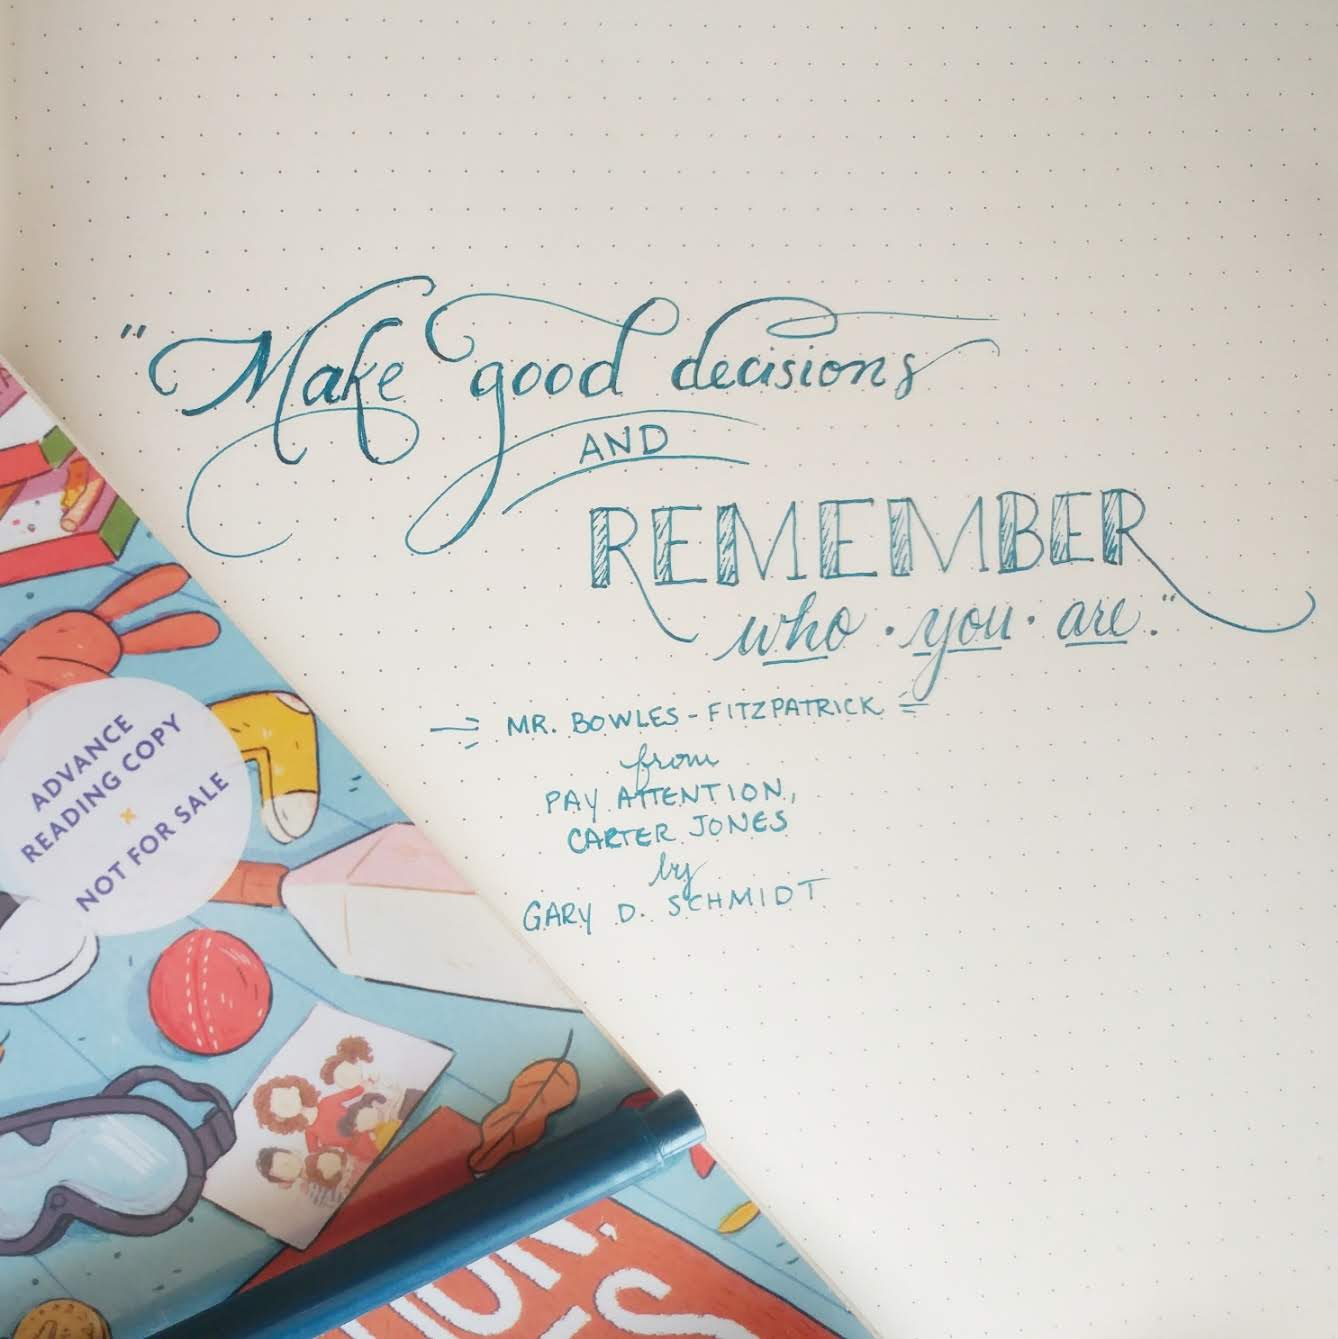 "Make good decisions
AND
REMEMBER
who · you · are."
MR. BOWLES-FITZPATRICK
from
PAY ATTENTION,
CARTER JONES
by
GARY D. SCHMIDT
ADVANCE
READING COPY
NOT FOR SALE